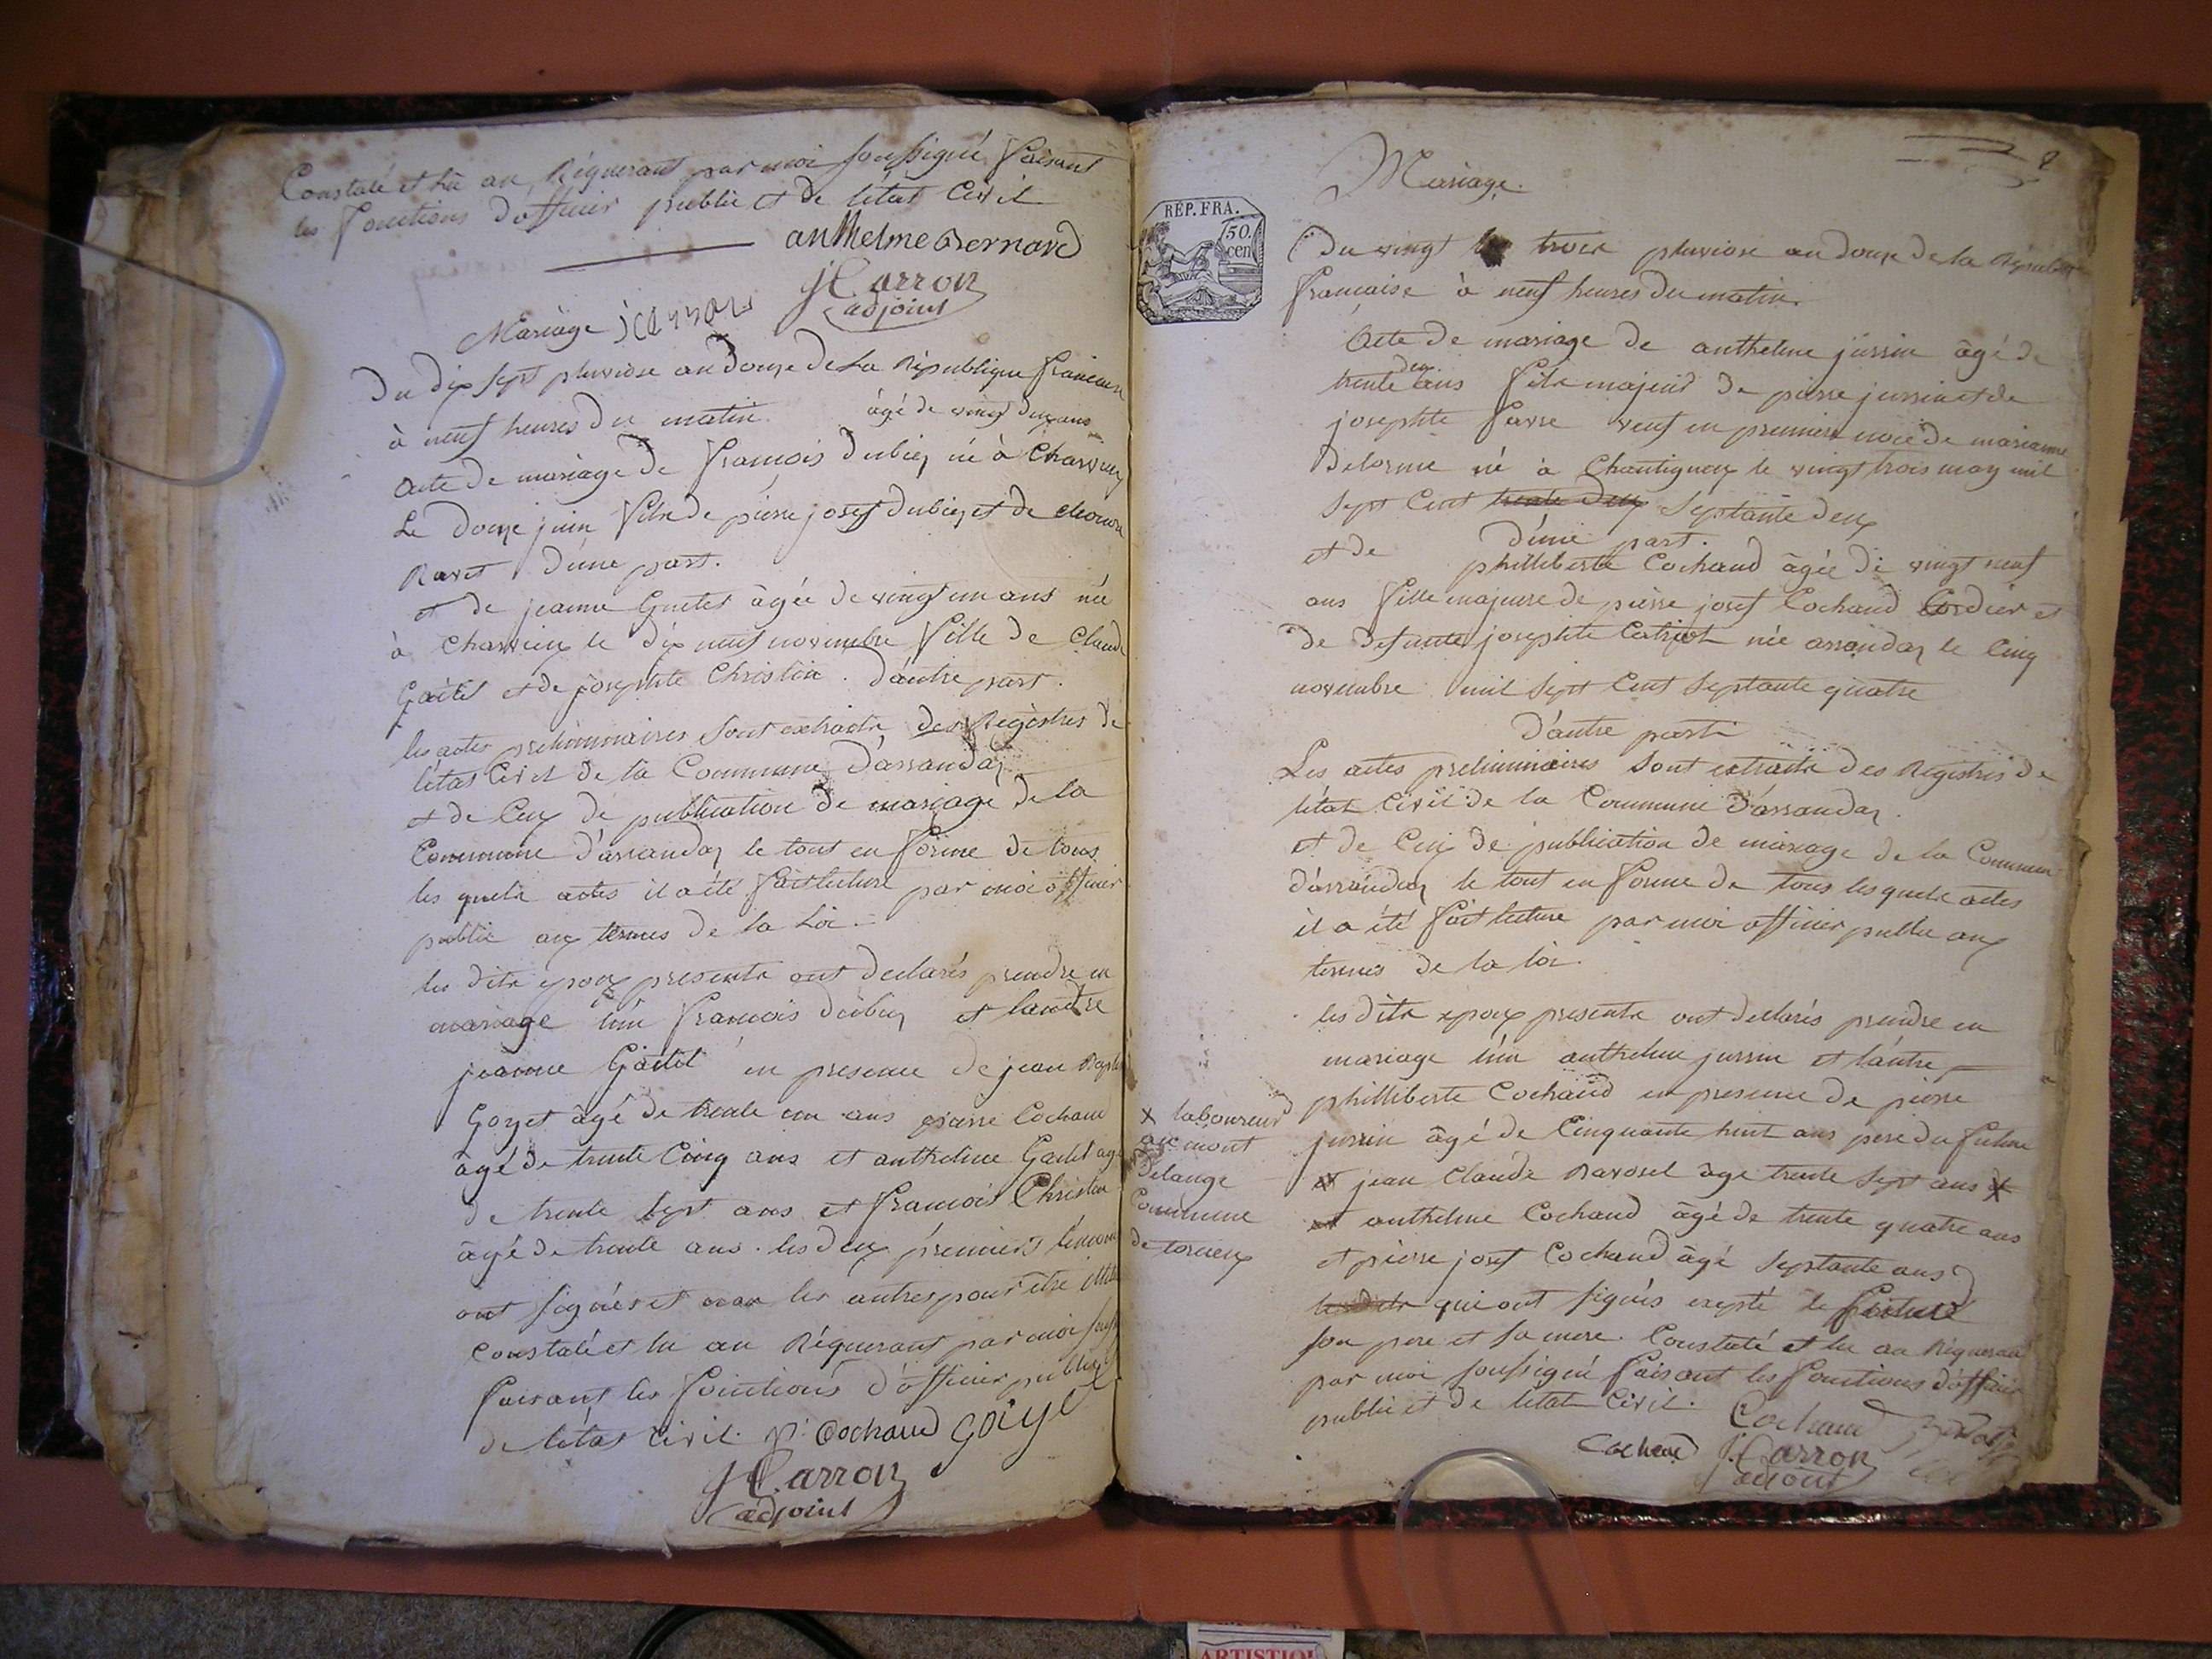 Constaté et lu au Réquerant par moi soussigné faisant
les fonctions d'officier public et de létat Civil
anthelme Bernard
J Carron
adjoint
Mariage
Du dix sept pluviose an douze de La République francaise
à neuf heures du matin. âgé de vingt deux ans
Acte de mariage de francois dubiez né à Charveux
Le douze juin fils de pierre josef dubiez et de
Ravet d'une part.
et de jeanne Guetet âgée de vingt un ans née
à Charveux le dix neuf novembre fille de Claude
Gaitet et de josephte Christin. d'autre part.
les actes preliminaires sont extraits des Registres de
létat Civil de la Commune d'arrandaz
et de Ceux de publication de mariage de la
Commune d'arrandaz le tout en forme de tous
les quels actes il a été fait lecture par moi officier
public aux termes de la Loi.
les dits epoux presents ont declarés prendre en
mariage l'un francois dubiez et lautre
jeanne Gaitet en presence de jean
Goyet âgé de trente un ans pierre Cochand
âgé de trente Cinq ans et anthelme Gaitet agé
de trente sept ans et francois Christin
âgé de trente ans. les deux premiers temoins
ont signés et non les autres pour être
Constaté et lu au Réquerant par moi
faisant les fonctions d'officier public
de létat Civil. P. Cochand Goiyet
J Carron
adjoint
8
Mariage.
REP. FRA.
50.
cen
Du vingt trois pluviose an douze de la Republique
francaise à neuf heures du matin.
Acte de mariage de anthelme jussin âgé de
trente deux ans fils majeur de pierre jussin et de
josephte favre veuf en premiere noce de marianne
Delorme né à Chantignay le vingt trois may mil
sept Cent trente deux septante deux
d'une part.
et de philliberte Cochand âgée de vingt neuf
ans fille majeure de pierre josef Cochand Cordier et
de defunte josephte née arrandaz le Cinq
novembre mil sept Cent septante quatre
d'autre part
Les actes preliminaires sont extraits des Registres de
létat Civil de la Commune d'arrandaz.
et de Ceux de publication de mariage de la Commune
d'arrandaz le tout en forme de tous les quels actes
il a été fait lecture par moi officier public aux
termes de la loi.
les dits epoux presents ont declarés prendre en
mariage l'un anthelme jussin et l'autre
philliberte Cochand en presence de pierre
jussin âgé de Cinquante huit ans pere du futur
et jean Claude Ravosel age trente sept ans x
et anthelme Cochand âgé de trente quatre ans
et pierre josef Cochand âgé septante ans
qui ont signés expté le
son pere et sa mere. Constaté et lu au Réquerant
par moi soussigné faisant les fonctions d'officier
public et de létat Civil. Cochand
Cochand J Carron
adjoint
x laboureur
au mont
delange
Commune
de
ARTISTIQ